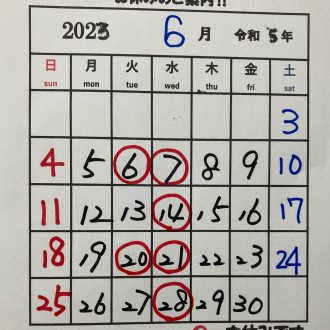 お休みのご案内!!
2023 6月 令和5年
日 月 火 水 木 金 土
sun mon tue wed thu fri sat
3
4 5 6 7 8 9 10
11 12 13 14 15 16 17
18 19 20 21 22 23 24
25 26 27 28 29 30
お休みです